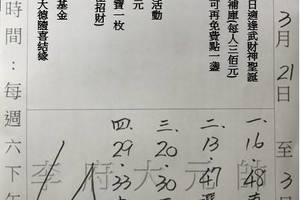 3月21日至3
日適逢武財神聖誕
補庫(每人三佰元)
可再免費點一盞
活動
寶一枚
招財)
基金
大德隨喜結緣
時間：每週六下午
一.16.48
二.13.47
三.20.30
四.29.33
李府大元帥